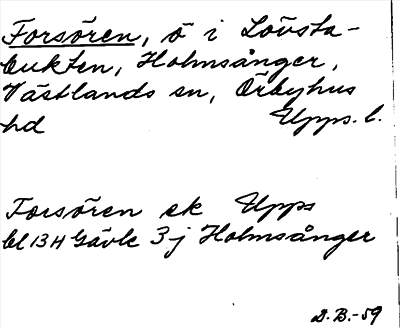 Forsören, ö i Lövsta-
bukten, Holmsånger,
Västlands sn, Örbyhus
hd Upps. l.
Forsören ek Upps
bl 13H Gävle 3j Holmsånger
D.B.-59